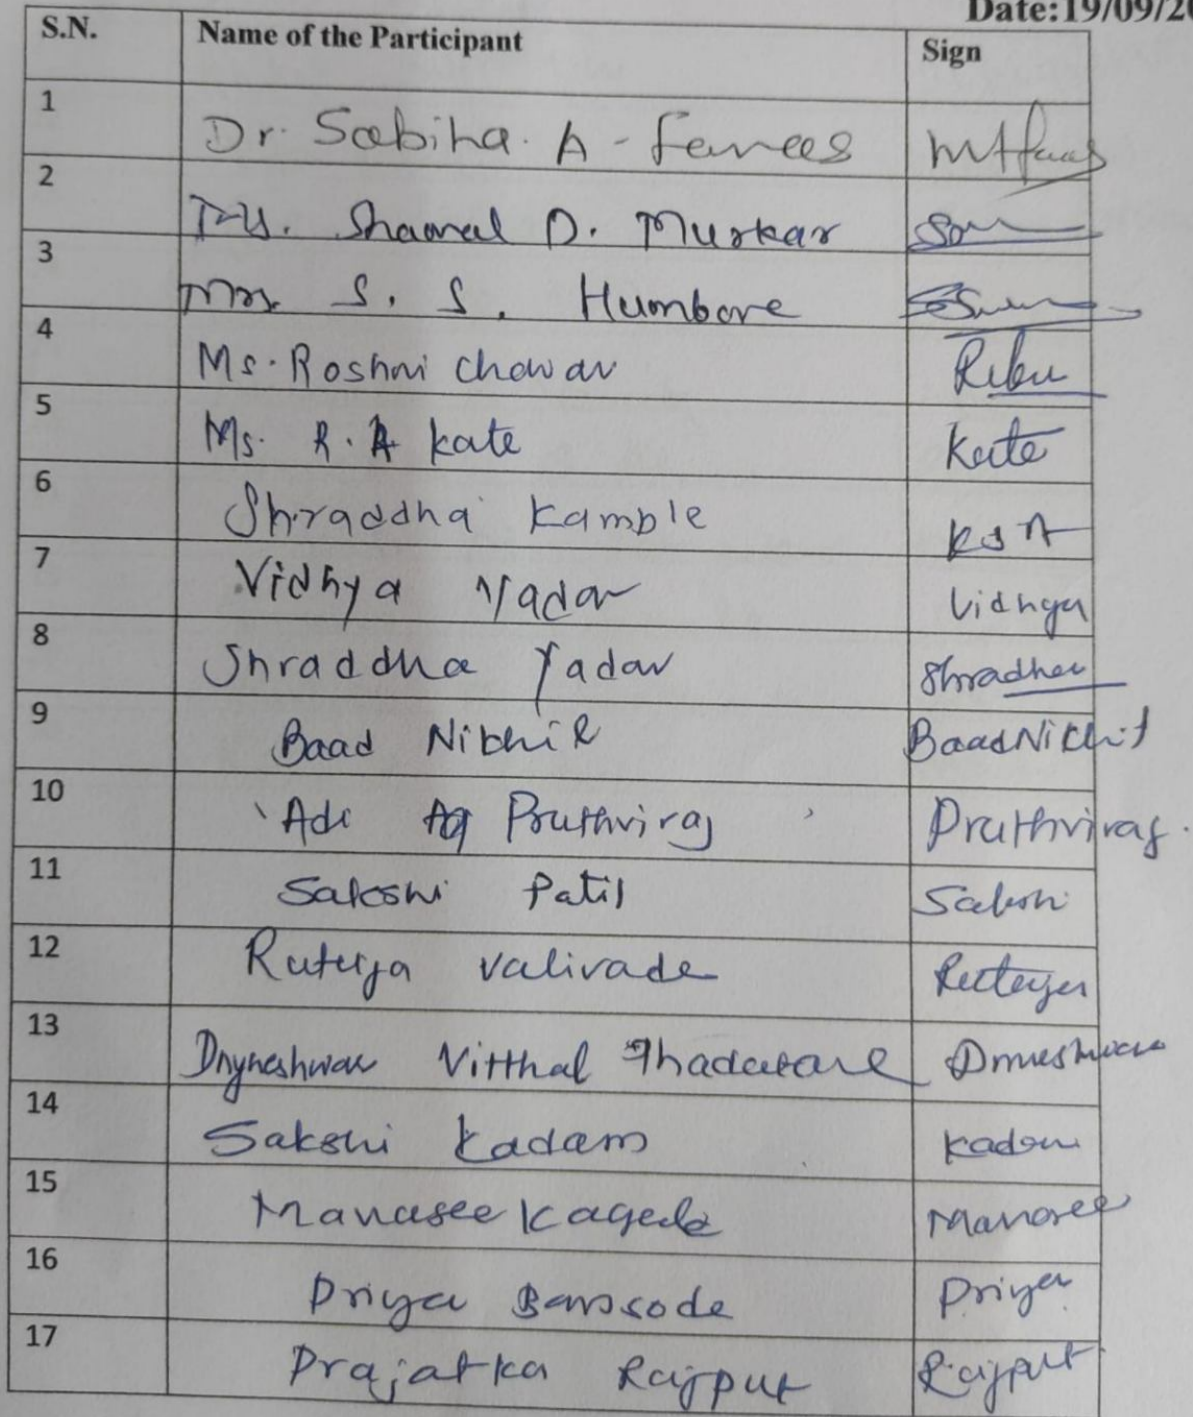 Date:19/09/20
S.N. Name of the Participant Sign
1 Dr. Sabiha. A - Farees
2 Shamal D. Murkar
3 Mrs. S. S. Humbare
4 Ms. Roshni Chavan
5 Ms. R. A Kate Kate
6 Shraddha Kamble KSA
7 Vidhya Yadav Vidhya
8 Shraddha Yadav Shradha
9 Baad Nikhil Baad Nikhil
10 Adi Pruthviraj Pruthviraj.
11 Sakshi Patil Sakshi
12 Rutuja Valivade Rutuja
13 Dnyneshwar Vitthal Dnneshwar
14 Sakshi Kadam Kadam
15 Manasee Manasee
16 Priya Bansode Priya
17 Prajatka Rajput Rajput